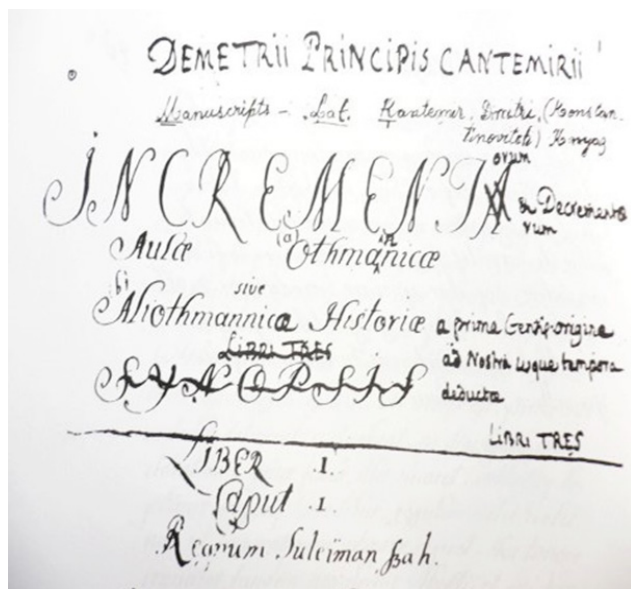 DEMETRII PRINCIPIS CANTEMIRII
Manuscripts - Lat. Kantemir, Dmitri, (Konstan.
tinovitch) Knyaz
orum
INCREMENTA & Decremento
rum
Aulæ (a) Othmanicæ
in
b) sive
Aliothmannicæ Historiæ a prima Gentis origine
LIBRI TRES ad Nostra usque tempora
SYNOPSIS deductæ
LIBRI TRES
LIBER .1.
Caput .1.
Regnum Suleiman Szah.